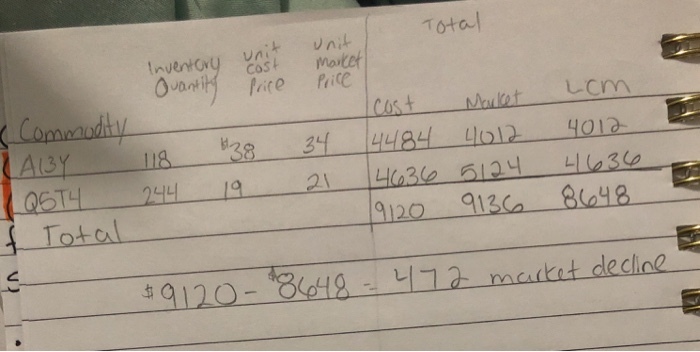 Total
Inventory Quantity unit cost Price unit market Price
Cost Market LCM
Commodity
A13Y 118 $38 34 4484 4012 4012
Q5T4 244 19 21 4636 5124 4636
Total 9120 9136 8648
$9120 - $8648 = 472 market decline